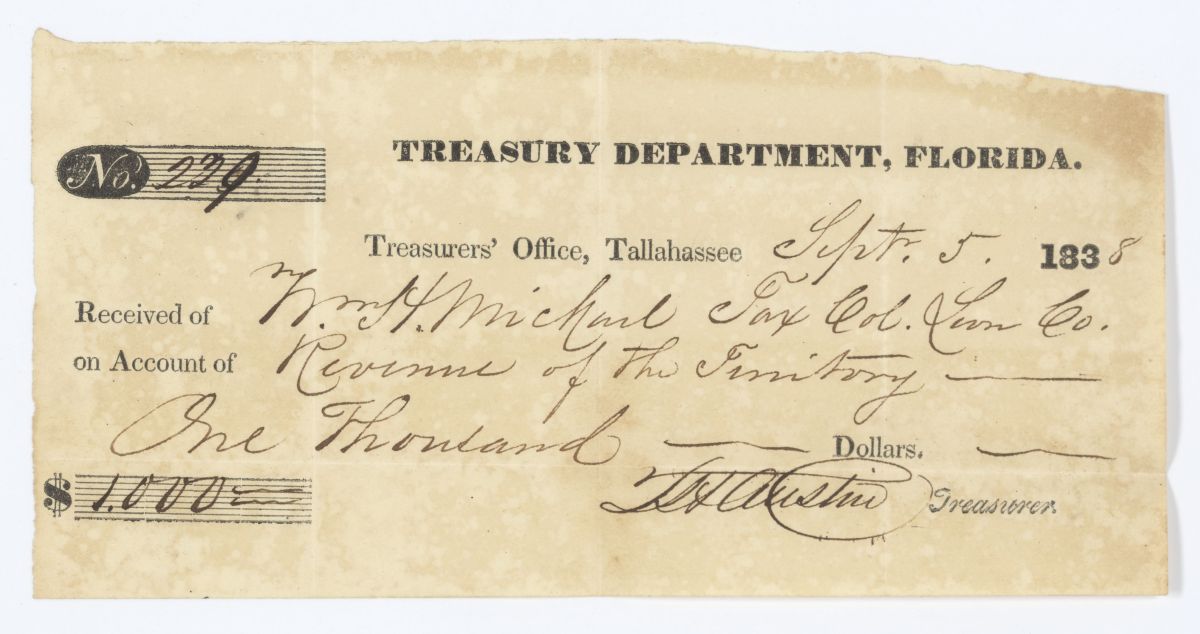 TREASURY DEPARTMENT, FLORIDA.
No. 239.
Treasurers' Office, Tallahassee Septr. 5. 1838
Received of Wm. H. Michael Tax Col. Leon Co.
on Account of Revenue of the Territory
One Thousand Dollars.
$ 1.000
Austin Treasurer.